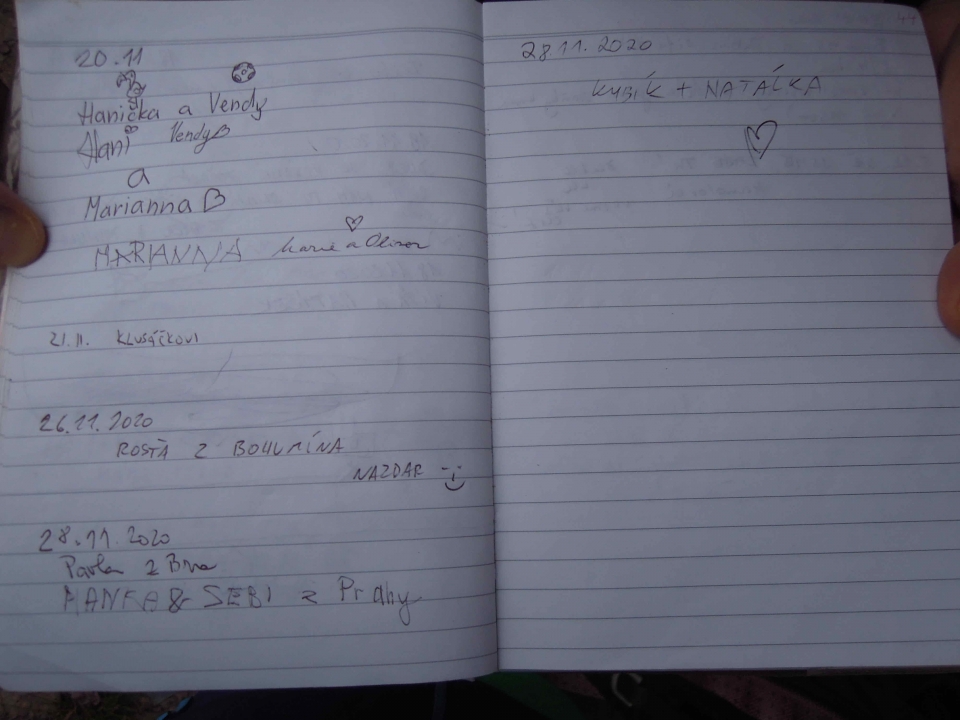 20.11
Hanička a Vendy
Hani Vendy
a
Marianna
MARIANNA Marie a Oliver
21.11. KLUSÁČKOVI
26.11.2020
ROSŤA Z BOHUMÍNA
NAZDAR
28.11.2020
Pavla z Brna
HANKA & SEBI z Prahy
44
28 11. 2020
KUBÍK + NATÁLKA